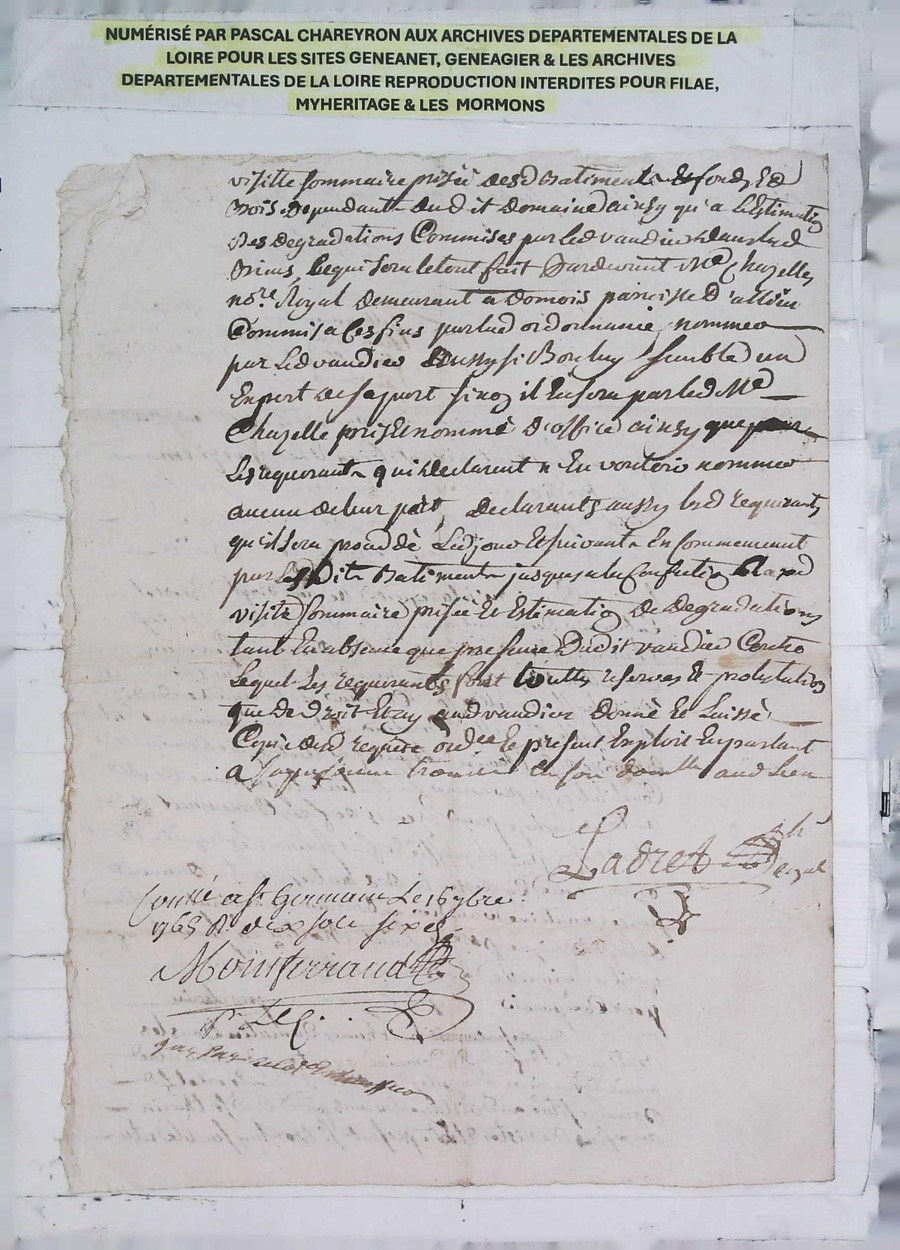 NUMÉRISÉ PAR PASCAL CHAREYRON AUX ARCHIVES DEPARTEMENTALES DE LA
LOIRE POUR LES SITES GENEANET, GENEAGIER & LES ARCHIVES
DEPARTEMENTALES DE LA LOIRE REPRODUCTION INTERDITES POUR FILAE,
MYHERITAGE & LES MORMONS
visitte sommaire prisée desd batiments fonds Et
Bois dependants dudit domaine ainsy qu'a l'Estimation
des degradations Commises par led vaudier dans led
Domaine par devant Me Chazelle
nore Royal demeurant a domois paroisse d'
Commis a Ces fins par lad ordonnance nommer
par Led vaudier sy Bon luy semble un
Expert de sa part sinon il En sera par led Me
Chazelle pris Et nommé d'office ainsy que pour
Les requerants qui declarent n En vouloir nommer
aucun de leur part, declarants aussy lesd requerants
qu'il sera procedé Led jour Et suivants En Commencant
par Lesdits Batiments jusques a la Confection de lad
visitte sommaire prisée Et Estimation de degradations
tant En absence que presence Dudit vaudier Contre
Lequel Les requerants font touttes reserves Et protestations
que de droit Et ay aud vaudier donné Et Laissé
Copie desd requete ordce Et present Exploit En parlant
a sa personne trouvée en son domille aud Lieu
Ladret
royal
Conllé a St Germain Le 16 7bre
1765 R dix sols six d
Montferrand